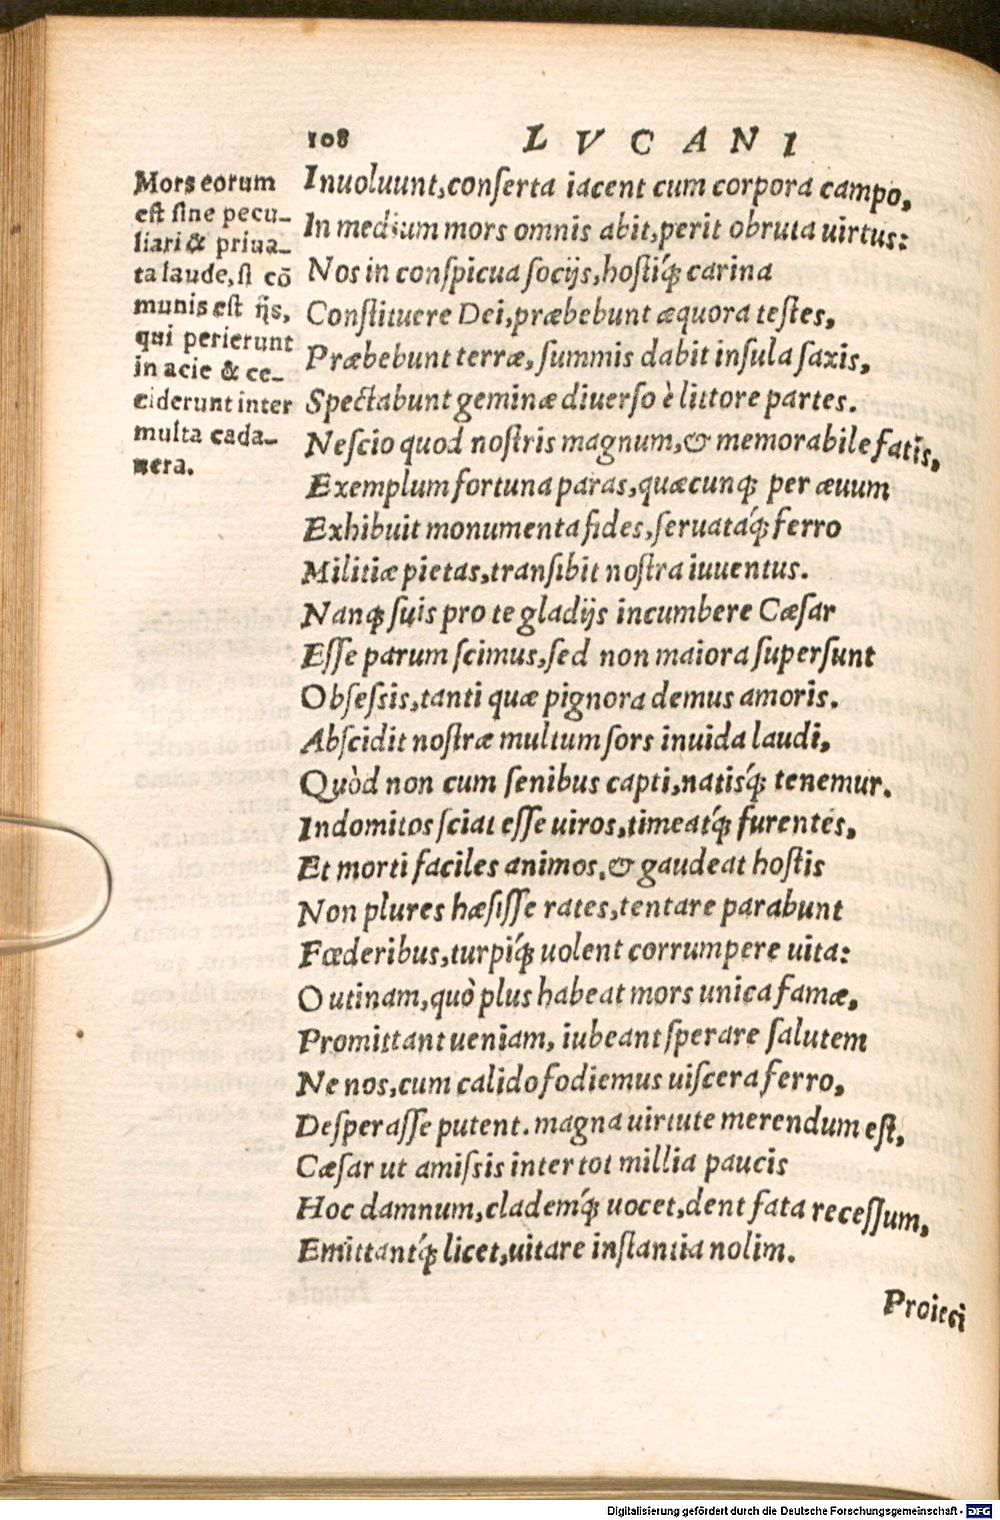 108 LVCANI
Mors eorum
est sine pecu-
liari & priua-
ta laude, si cō
munis est ijs,
qui perierunt
in acie & ce-
ciderunt inter
multa cada-
uera.
Inuoluunt, conserta iacent cum corpora campo,
In medium mors omnis abit, perit obruta uirtus:
Nos in conspicua socijs, hostiq́; carina
Constituere Dei, præbebunt æquora testes,
Præbebunt terræ, summis dabit insula saxis,
Spectabunt geminæ diuerso è littore partes.
Nescio quod nostris magnum, & memorabile fatis,
Exemplum fortuna paras, quæcunq; per æuum
Exhibuit monumenta fides, seruataq́; ferro
Militiæ pietas, transibit nostra iuuentus.
Nanq; suis pro te gladijs incumbere Cæsar
Esse parum scimus, sed non maiora supersunt
Obsessis, tanti quæ pignora demus amoris.
Abscidit nostræ multum sors inuida laudi,
Quòd non cum senibus capti, natisq́; tenemur.
Indomitos sciat esse uiros, timeatq́; furentes,
Et morti faciles animos, & gaudeat hostis
Non plures hæsisse rates, tentare parabunt
Fœderibus, turpiq́; uolent corrumpere uita:
O utinam, quò plus habeat mors unica famæ,
Promittant ueniam, iubeant sperare salutem
Ne nos, cum calido fodiemus uiscera ferro,
Desperasse putent. magna uirtute merendum est,
Cæsar ut amissis inter tot millia paucis
Hoc damnum, clademq́; uocet, dent fata recessum,
Emittantq́; licet, uitare instantia nolim.
Proieci
Digitalisierung gefördert durch die Deutsche Forschungsgemeinschaft - DFG